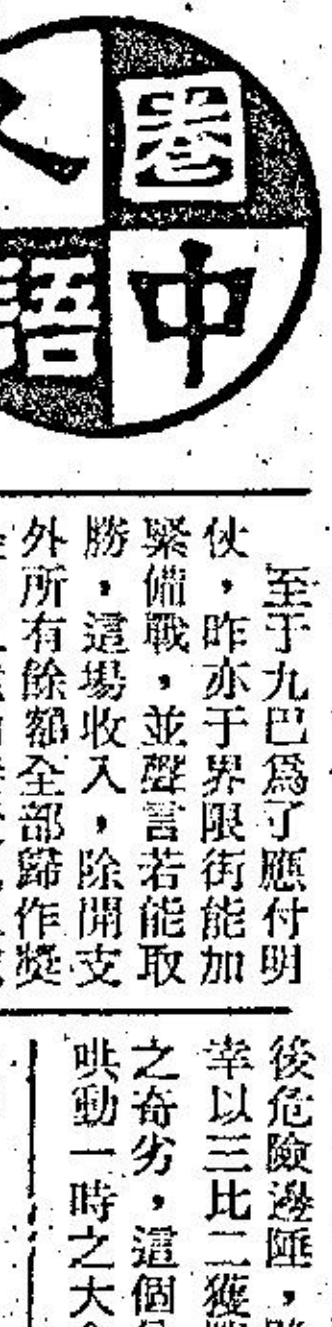 圈中
人語
至于九巴爲了應付明
伙，昨亦于界限街能加
緊備戰，並聲言若能取
勝，這場收入，除開支
外所有餘額全部歸作獎
後危險邊陲，
幸以三比二獲
之奇劣，這個
哄動一時之大